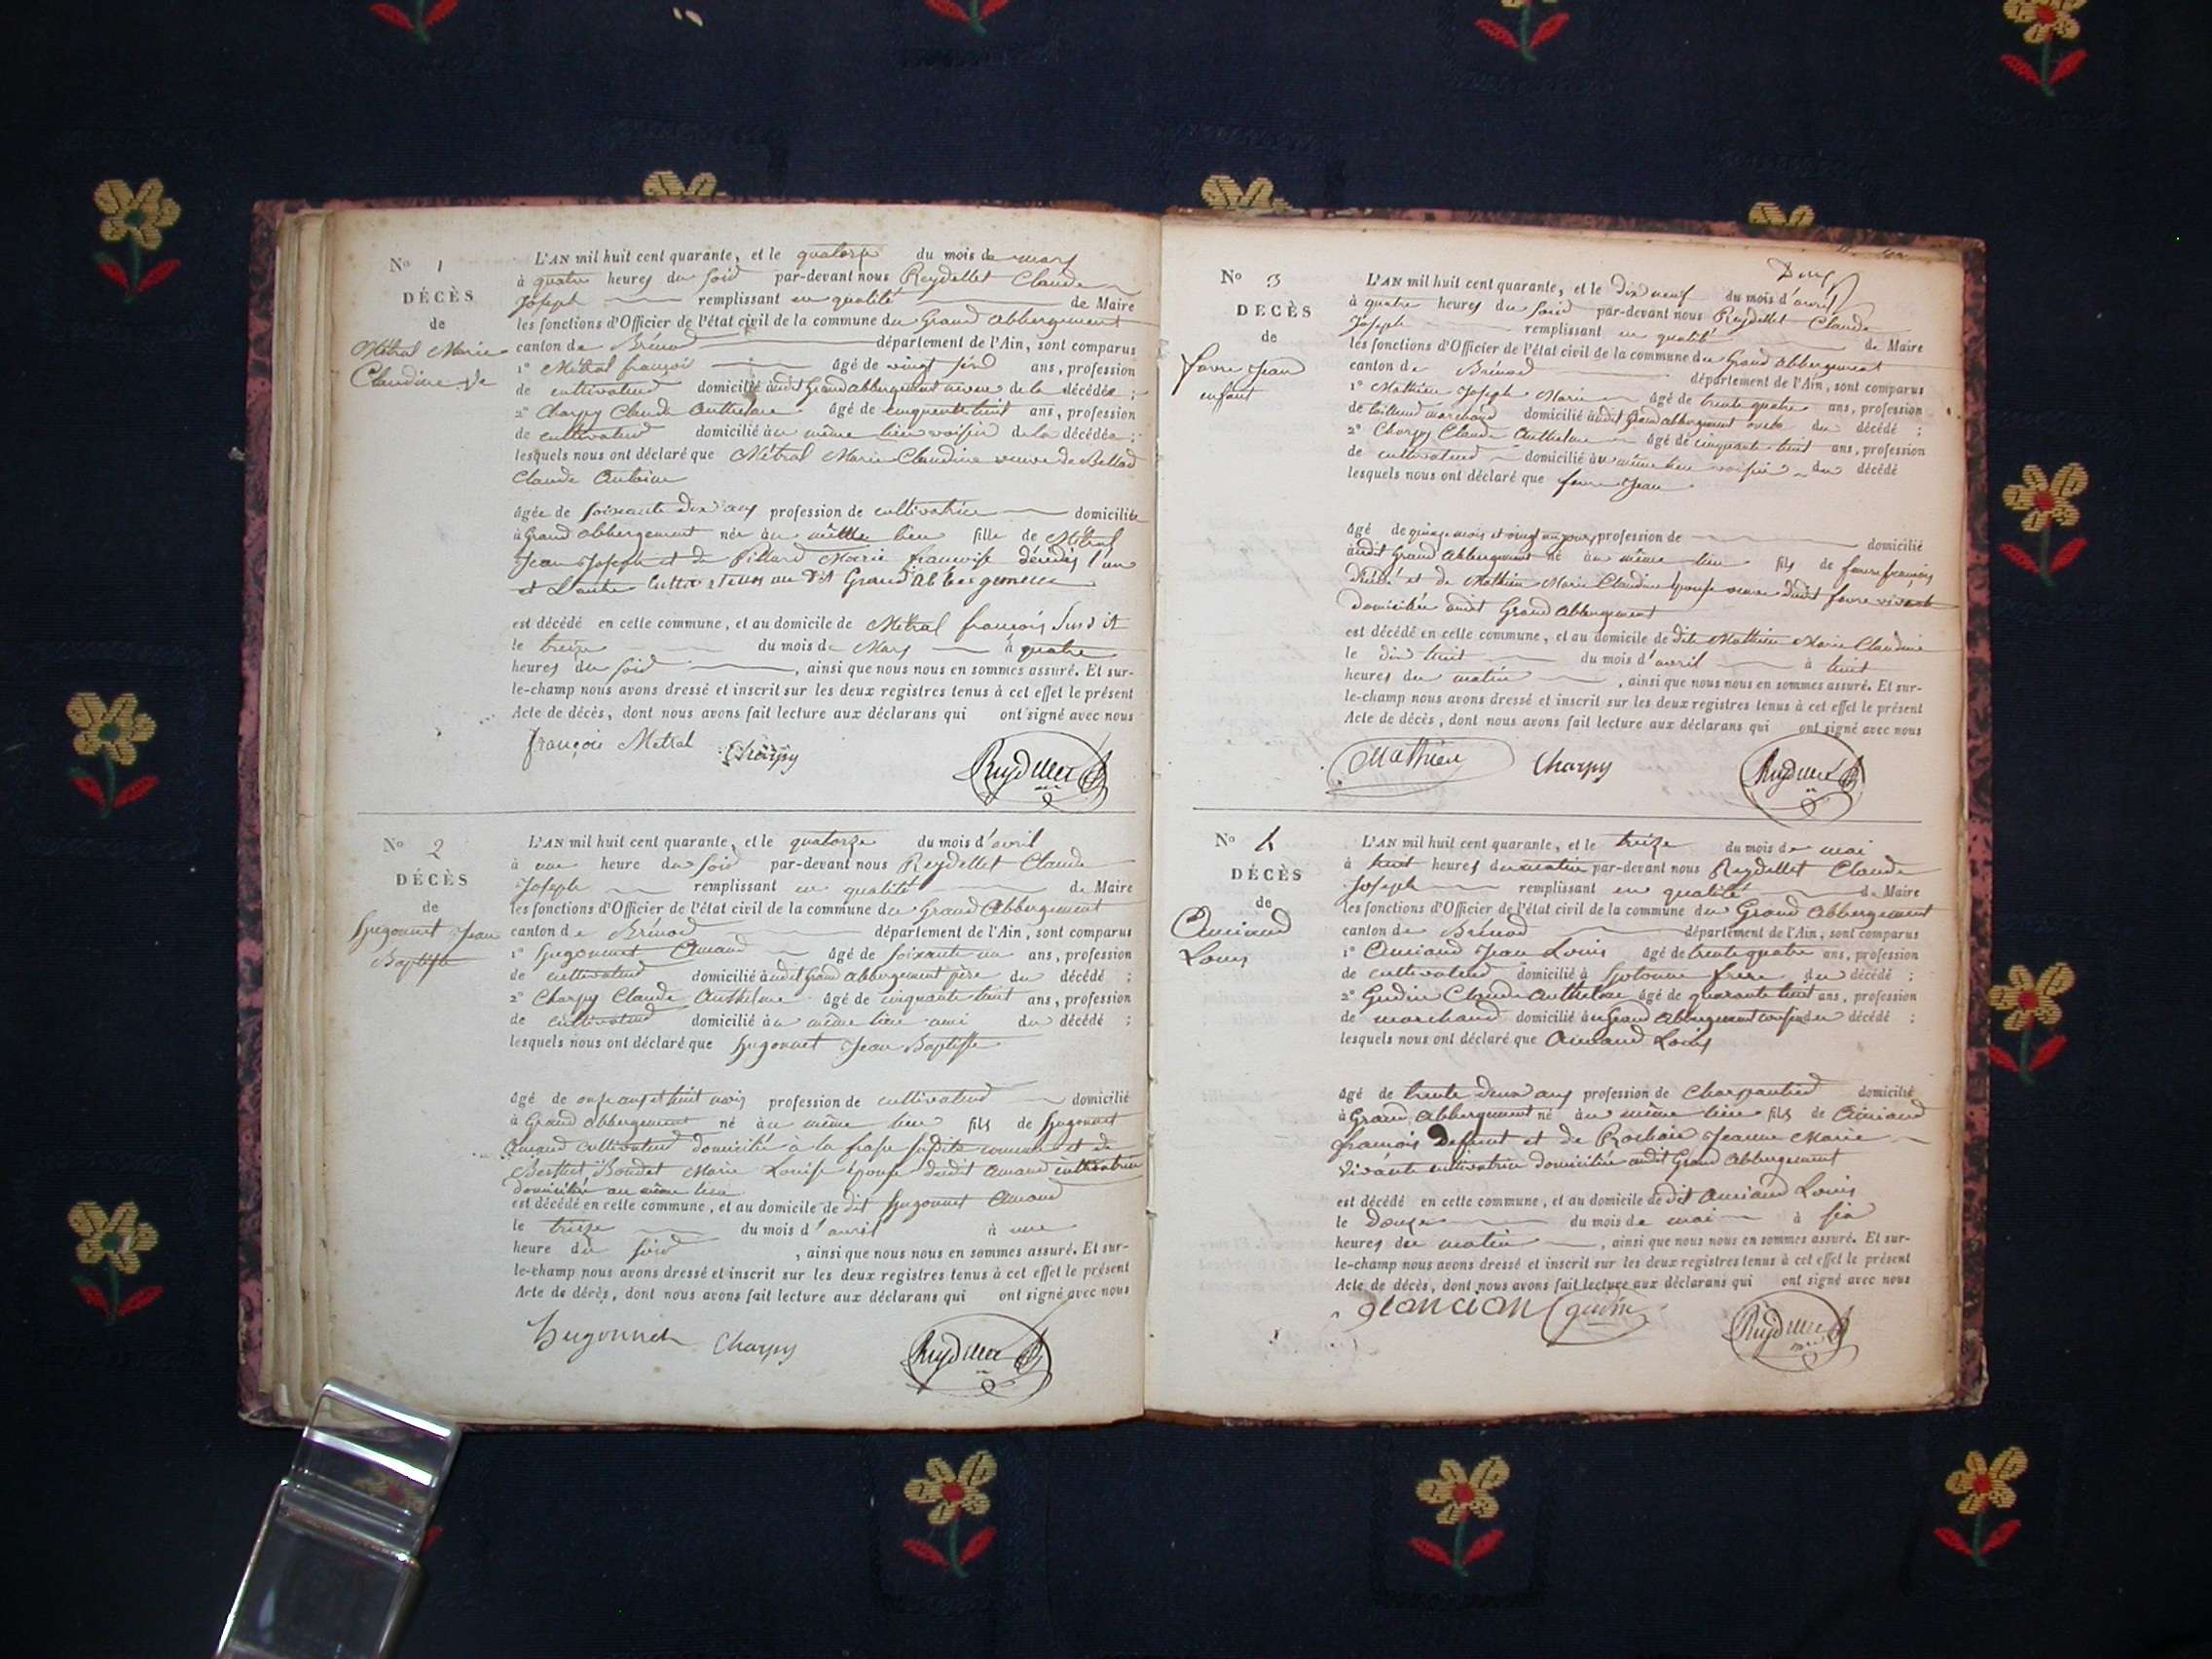 No 1
DÉCÈS
de
Métral Marie
Claudine Ve
L'AN mil huit cent quarante, et le quatorze du mois de mars
à quatre heures du soir par-devant nous Reydellet Claude
Joseph remplissant en qualité de Maire
les fonctions d'Officier de l'état civil de la commune du Grand Abbergement
canton de Brénod département de l'Ain, sont comparus
1° Métral françois âgé de vingt ans, profession
de cultivateur domicilié audit Grand abbergement neveu de la décédée ;
2° Charpy Claude Anthelme âgé de cinquante huit ans, profession
de cultivateur domicilié au même lieu voisin de la décédée ;
lesquels nous ont déclaré que Métral Marie Claudine veuve de Bellod
Claude Antoine
âgée de soixante dix ans profession de cultivatrice domiciliée
à Grand abbergement née au même lieu fille de Métral
Jean Joseph et de Marie françoise décédés l'un
et L'autre Cultivateurs au dit Grand Abbergement
est décédé en cette commune, et au domicile de Métral françois Susdit
le treize du mois de Mars à quatre
heures du soir , ainsi que nous nous en sommes assuré. Et sur-
le-champ nous avons dressé et inscrit sur les deux registres tenus à cet effet le présent
Acte de décès, dont nous avons fait lecture aux déclarans qui ont signé avec nous
françois Metral Charpy Reydellet
No 2
DÉCÈS
de
hugonnet Jean
Baptiste
L'AN mil huit cent quarante, et le quatorze du mois d'avril
à une heure du soir par-devant nous Reydellet Claude
Joseph remplissant en qualité de Maire
les fonctions d'Officier de l'état civil de la commune du Grand Abbergement
canton de Brénod département de l'Ain, sont comparus
1° hugonnet Amand âgé de soixante un ans, profession
de cultivateur domicilié audit Grand abbergement père du décédé ;
2° Charpy Claude Anthelme âgé de cinquante huit ans, profession
de cultivateur domicilié au même lieu ami du décédé ;
lesquels nous ont déclaré que hugonnet Jean Baptiste
âgé de onze ans et huit mois profession de cultivateur domicilié
à Grand abbergement né au même lieu fils de hugonnet
Amand cultivateur domicilié à la susdite commune et de
Berthet Bondet Marie Louise épouse dudit Amand cultivatrice
domiciliée au même lieu
est décédé en cette commune, et au domicile de dit hugonnet Amand
le treize du mois d'avril à une
heure du soir , ainsi que nous nous en sommes assuré. Et sur-
le-champ nous avons dressé et inscrit sur les deux registres tenus à cet effet le présent
Acte de décès, dont nous avons fait lecture aux déclarans qui ont signé avec nous
hugonnet Charpy Reydellet
No 3
DÉCÈS
de
favre Jean
enfant
L'AN mil huit cent quarante, et le dix neuf du mois d'avril
à quatre heures du soir par-devant nous Reydellet Claude
Joseph remplissant en qualité de Maire
les fonctions d'Officier de l'état civil de la commune du Grand abbergement
canton de Brénod département de l'Ain, sont comparus
1° Mathieu Joseph Marie âgé de trente quatre ans, profession
de marchand domicilié audit Grand abbergement oncle du décédé ;
2° Charpy Claude Anthelme âgé de cinquante huit ans, profession
de cultivateur domicilié au même lieu voisin du décédé
lesquels nous ont déclaré que favre Jean
âgé de quinze mois et vingt un jours profession de domicilié
audit Grand Abbergement né au même lieu fils de favre françois
et de Mathieu Marie Claudine dudit favre vivante
domiciliée audit Grand Abbergement
est décédé en cette commune, et au domicile de dite Mathieu Marie Claudine
le dix huit du mois d'avril à huit
heures du matin , ainsi que nous nous en sommes assuré. Et sur-
le-champ nous avons dressé et inscrit sur les deux registres tenus à cet effet le présent
Acte de décès, dont nous avons fait lecture aux déclarans qui ont signé avec nous
Mathieu Charpy Reydellet
No 4
DÉCÈS
de
Louis
L'AN mil huit cent quarante, et le treize du mois de mai
à huit heures du matin par-devant nous Reydellet Claude
Joseph remplissant en qualité de Maire
les fonctions d'Officier de l'état civil de la commune du Grand Abbergement
canton de Brénod département de l'Ain, sont comparus
1° Jean Louis âgé de trente quatre ans, profession
de cultivateur domicilié à hotonne frère du décédé ;
2° Gudin Claude Anthelme âgé de quarante huit ans, profession
de marchand domicilié au Grand Abbergement voisin du décédé ;
lesquels nous ont déclaré que Louis
âgé de trente deux ans profession de Charpentier domicilié
à Grand Abbergement né au même lieu fils de
françois Defunt et de Jeanne Marie
vivante cultivatrice domiciliée audit Grand Abbergement
est décédé en cette commune, et au domicile de dit Louis
le douze du mois de mai à six
heures du matin , ainsi que nous nous en sommes assuré. Et sur-
le-champ nous avons dressé et inscrit sur les deux registres tenus à cet effet le présent
Acte de décès, dont nous avons fait lecture aux déclarans qui ont signé avec nous
gudin Reydellet